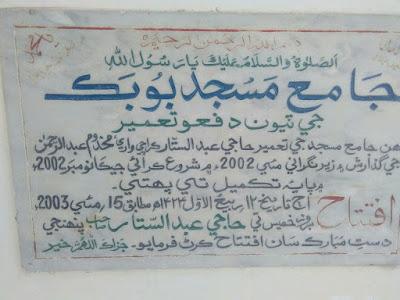 بسم الله الرحمن الرحيم
الصلوٰة والسلام عليك يا رسول الله
جامع مسجد بوبڪ
جي ٽيون دفعو تعمير
هن جامع مسجد جي تعمير حاجي عبدالستار ڪراچي واري مخدوم عبدالرحمٰن
جي گذارش ۽ زير نگراني مئي 2002ء ۾ شروع ڪرائي جيڪا نومبر 2002ء
۾ پايه تڪميل تي پهتي۔
افتتاح
اڄ تاريخ ١٢ ربيع الاول ١٤٢٤ھ مطابق 15 مئي 2003ء
خميس تي حاجي عبدالستار صاحب پنهنجي
دست مبارڪ سان افتتاح ڪرڻ فرمايو۔ جزاڪ اللهم خير